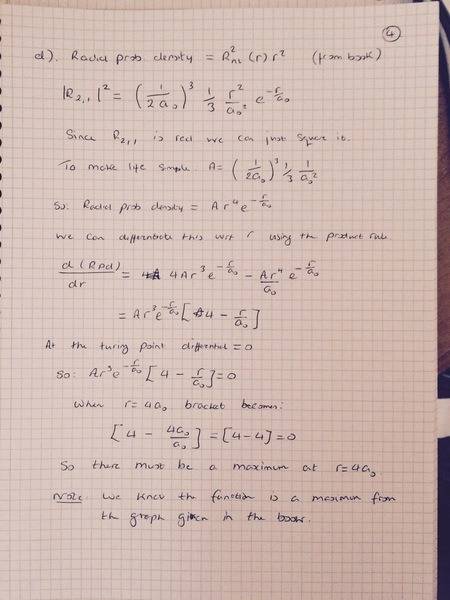 ④
d). Radial prob density = R²nl (r) r² (from book)
|R₂,₁|² = (1/2a₀)³ 1/3 r²/a₀² e^(-r/a₀)
Since R₂,₁ is real we can just square it.
To make life simple A = (1/2a₀)³ 1/3 1/a₀²
So: Radial prob density = Ar⁴e^(-r/a₀)
we can differentiate this wrt r using the product rule
d(RPd)/dr = 4Ar³e^(-r/a₀) - Ar⁴/a₀ e^(-r/a₀)
= Ar³e^(-r/a₀) [4 - r/a₀]
At the turing point differential = 0
So: Ar³e^(-r/a₀) [4 - r/a₀] = 0
when r = 4a₀ bracket becomes:
[4 - 4a₀/a₀] = [4-4] = 0
So there must be a maximum at r = 4a₀
Note: We know the function is a maximum from
the graph given in the book.